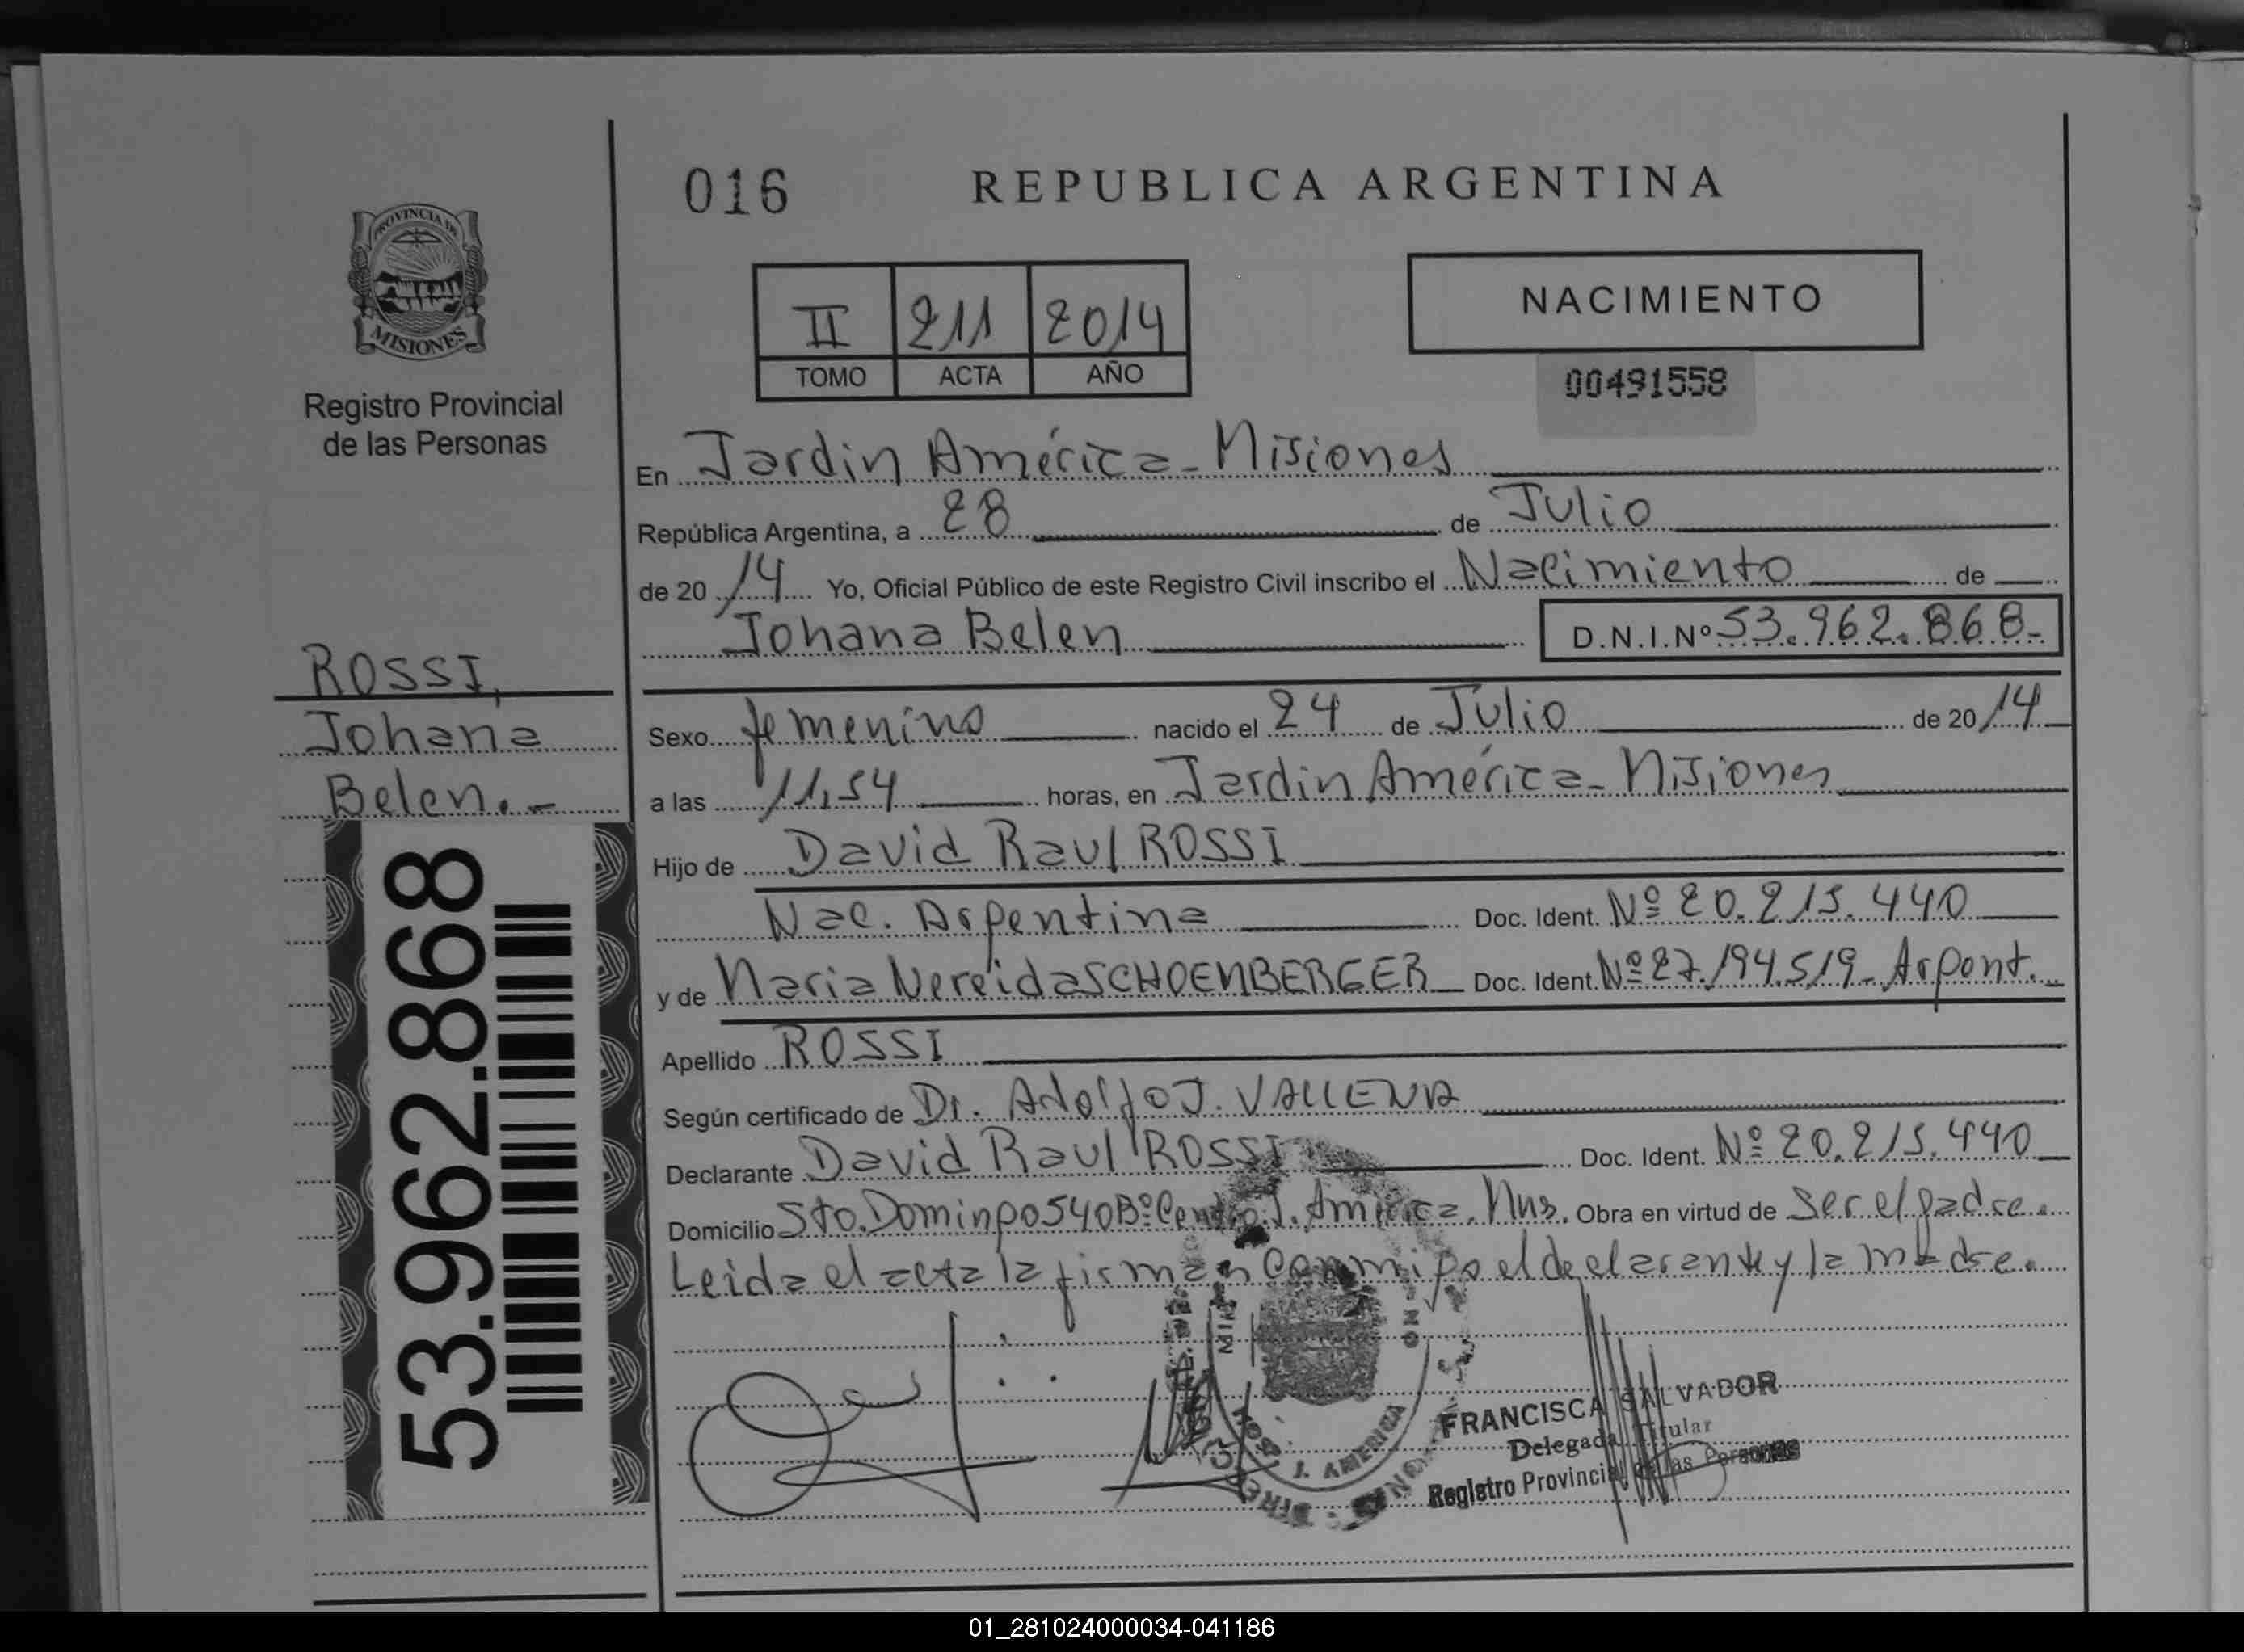 016
REPUBLICA ARGENTINA
PROVINCIA DE
MISIONES
Registro Provincial
de las Personas
II 211 2014
TOMO ACTA AÑO
NACIMIENTO
00491558
En Jardin América - Misiones
República Argentina, a 28 de Julio
de 2014 Yo, Oficial Público de este Registro Civil inscribo el Nacimiento de
Johana Belen D.N.I.Nº 53.962.868-
ROSSI,
Johana
Belen.-
53.962.868
Sexo femenino nacido el 24 de Julio de 2014
a las 11,54 horas, en Jardin América - Misiones
Hijo de David Raul ROSSI
Nac. Argentina Doc. Ident. Nº 20.215.440
y de Maria Nereida SCHOENBERGER Doc. Ident. Nº 27.194.519 - Argent.
Apellido ROSSI
Según certificado de Dr. Adolfo J. VALLENA
Declarante David Raul ROSSI Doc. Ident. Nº 20.215.440
Domicilio Sto. Domingo 540 Bº Centro J. América, Mns. Obra en virtud de ser el padre.
Leida el acta la firman conmigo el declarante y la madre.
J. AMERICA
FRANCISCA SALVADOR
Delegada Titular
Registro Provincial de las Personas
01_281024000034-041186